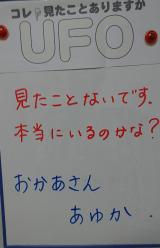 コレ見たことありますか
UFO
見たことないです。
本当にいるのかな?
おかあさん
あゆか